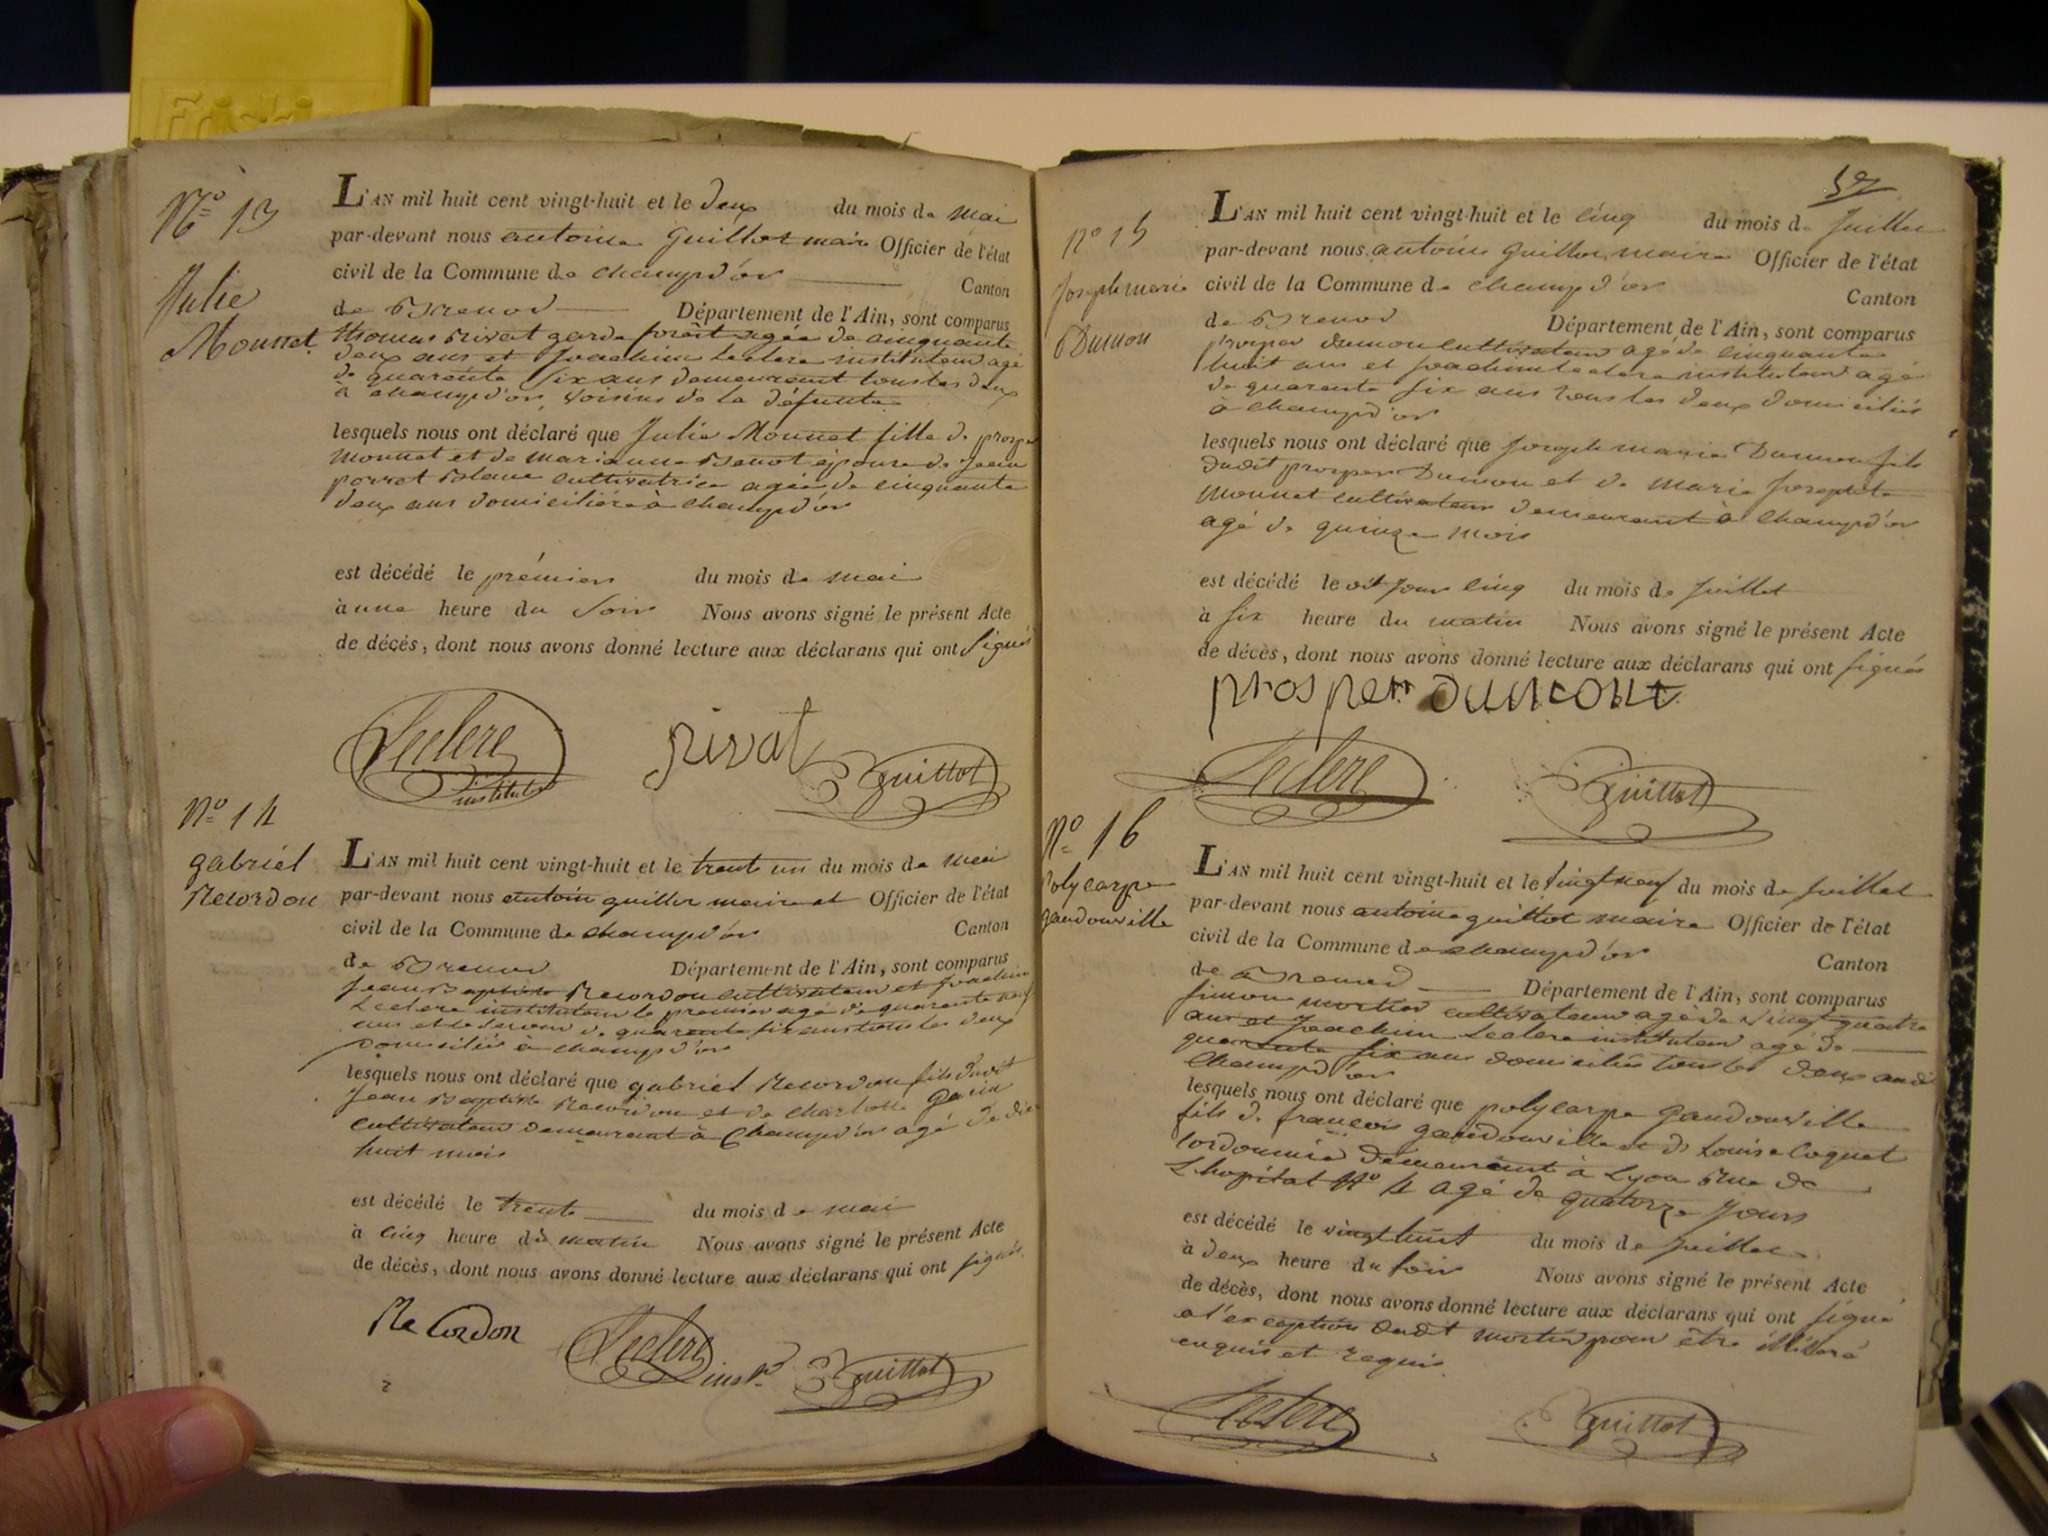 N.o 13
Julie
Mounet
L'AN mil huit cent vingt-huit et le deux du mois de mai
par-devant nous antoine Guillot maire Officier de l'état
civil de la Commune de champd'or Canton
de Brenod Département de l'Ain, sont comparus
thomas privat garde forêt agée de cinquante
deux ans et Joachim Leclerc instituteur agé
de quarente six ans demeurant tous les deux
à champd'or, voisins de la défunte
lesquels nous ont déclaré que Julie Mounet fille de prosper
Mounet et de marianne Benot épouse de Jean
porrot Blanc cultivatrice agée de cinquante
deux ans domiciliée à champd'or
est décédé le prémier du mois de mai
à une heure du soir Nous avons signé le présent Acte
de décès, dont nous avons donné lecture aux déclarans qui ont signés
Leclerc
institutr
privat
Guillot
N.o 14
gabriel
Recordon
L'AN mil huit cent vingt-huit et le trente un du mois de mai
par-devant nous antoin guillot maire et Officier de l'état
civil de la Commune de champd'or Canton
de Brenod Département de l'Ain, sont comparus
Jean Baptiste Recordon cultivateur et Joachim
Leclerc instituteur le premier agé de quarente neuf
ans et le second de quarente six ans tous les deux
domiciliés à champd'or
lesquels nous ont déclaré que gabriel Recordon fils dudit
Jean Baptiste Recordon et de charlotte
cultivateur demeurant à Champd'or agé de dix
huit mois
est décédé le trente du mois de mai
à cinq heure du matin Nous avons signé le présent Acte
de décès, dont nous avons donné lecture aux déclarans qui ont signés
Recordon
Leclerc
instr
Guillot
57
N.o 15
Joseph marie
Dumon
L'AN mil huit cent vingt-huit et le cinq du mois de juillet
par-devant nous antoine Guillot maire Officier de l'état
civil de la Commune de champd'or Canton
de Brenod Département de l'Ain, sont comparus
prosper dumon cultivateur agé de cinquante
huit ans et Joachim Leclerc instituteur agé
de quarente six ans tous les deux domiciliés
à champd'or
lesquels nous ont déclaré que Joseph marie Dumon fils
dudit prosper Dumon et de marie Josephte
Mounet cultivateur demeurant à Champd'or
agé de quinze mois
est décédé le dit jour cinq du mois de juillet
à six heure du matin Nous avons signé le présent Acte
de décès, dont nous avons donné lecture aux déclarans qui ont signés
prosper dumont
Leclerc
Guillot
N.o 16
Polycarpe
gaudouville
L'AN mil huit cent vingt-huit et le vingt neuf du mois de juillet
par-devant nous antoine guillot maire Officier de l'état
civil de la Commune de champd'or Canton
de Brenod Département de l'Ain, sont comparus
simon mortier cultivateur agé de vingt quatre
ans et Joachim Leclerc instituteur agé de
quarente six ans domiciliés tous les deux audit
Champd'or
lesquels nous ont déclaré que polycarpe Gaudouville
fils de françois gaudouville et de Louise Coquet
cordonnier demeurant à Lyon Rue de
L'hopital N.o 4 agé de quatorze jours
est décédé le vingt huit du mois de juillet
à deux heure du soir Nous avons signé le présent Acte
de décès, dont nous avons donné lecture aux déclarans qui ont signé
a l'exception dudit mortier pour être illitéré
enquis et requis
Leclerc
Guillot